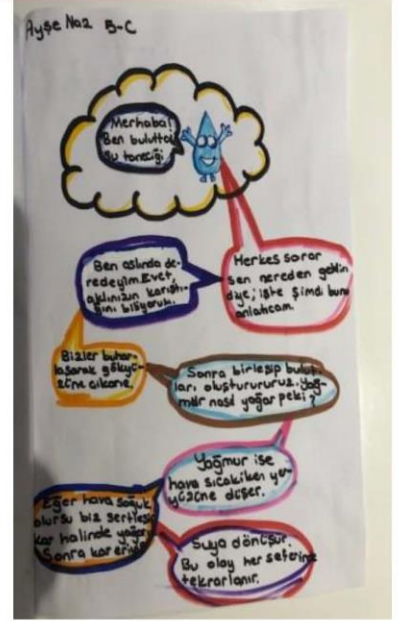 Ayşe Naz 5-C
Merhaba!
Ben buluttaki
su taneciği
Herkes sorar
sen nereden geldin
diye; işte şimdi bunu
anlatıcam.
Ben aslında de-
redeyim. Evet,
aklınızın karıştı-
ğını biliyorum.
Bizler buhar-
laşarak gökyü-
züne çıkarız.
Sonra birleşip bulut-
ları oluştururuz. Yağ-
mur nasıl yağar peki?
Yağmur ise
hava sıcakken yer-
yüzüne düşer.
Eğer hava soğuk
olursu biz sertleşip
kar halinde yağarız
Sonra kar eriyip
Suya dönüşür.
Bu olay her seferinde
tekrarlanır.